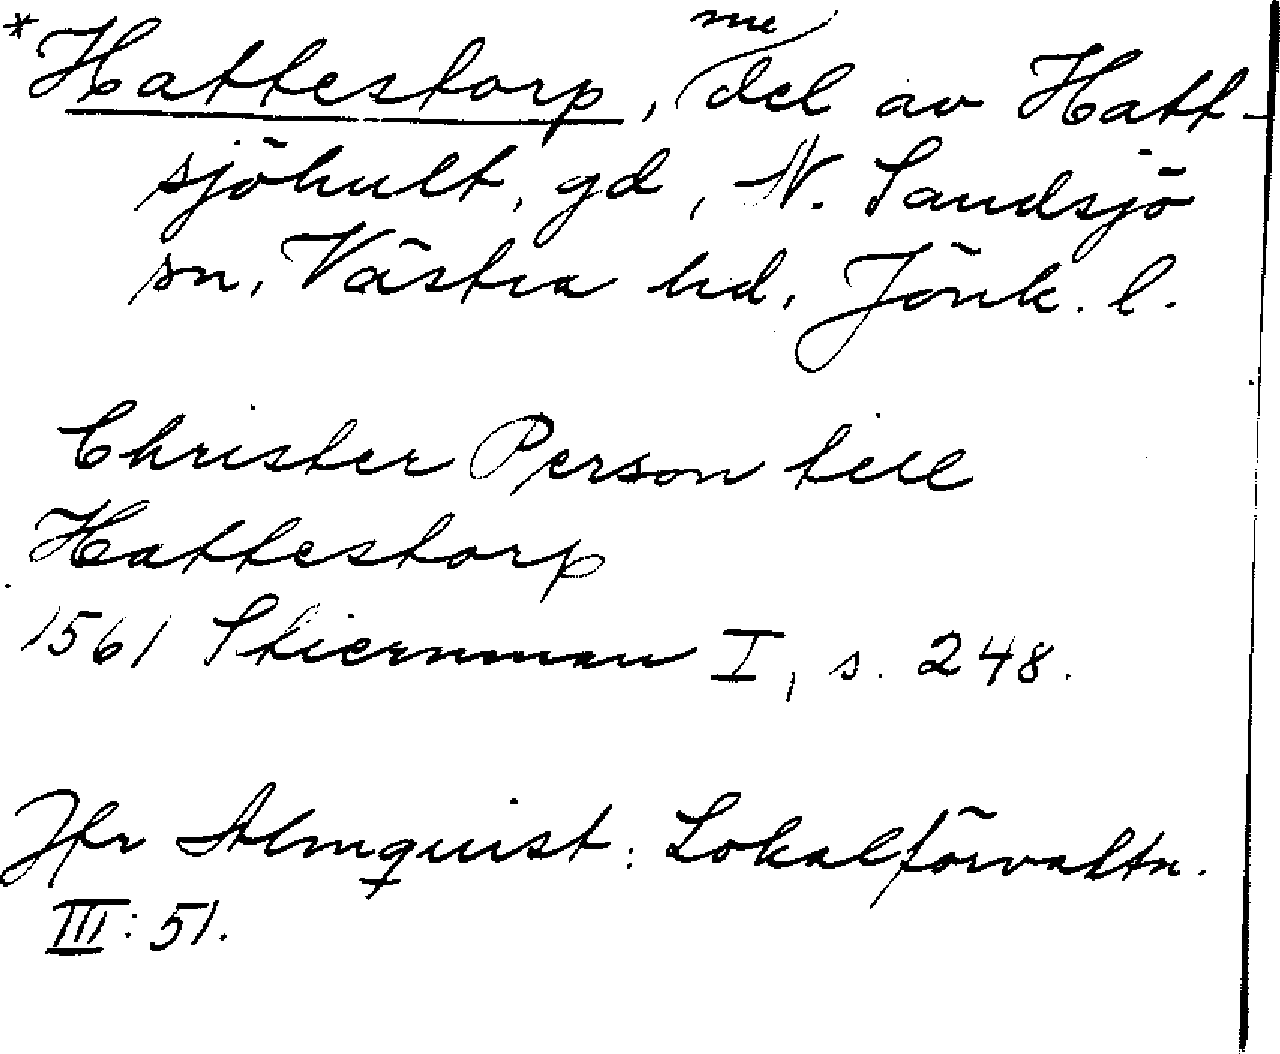 *Hattestorp, nu del av Hatt-
sjöhult, gd, N. Sandsjö
sn, Västra hd, Jönk. l.
Christer Person till
Hattestorp
1561 Stiernman I, s. 248.
Jfr Almquist: Lokalförvaltn.
III: 51.